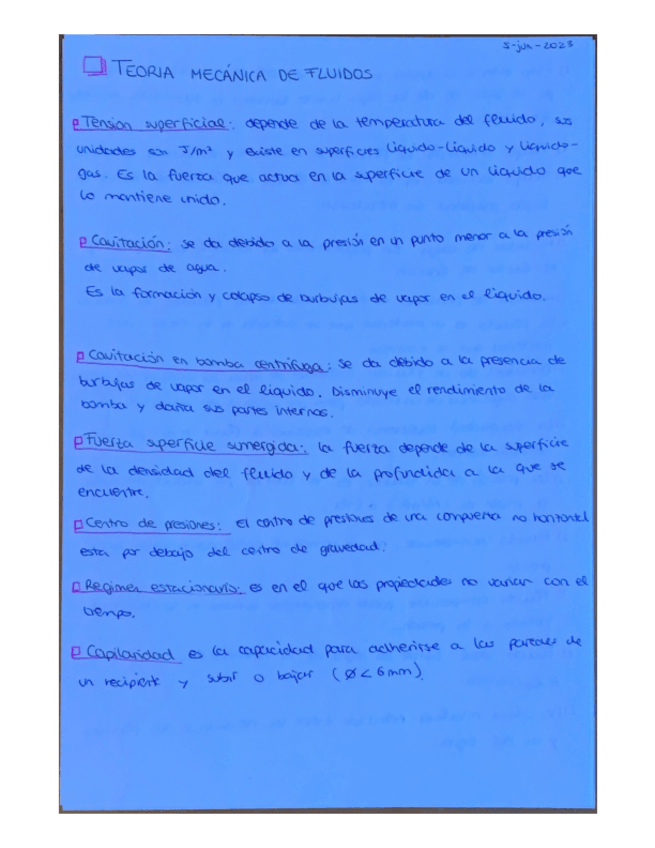 5-jun-2023
TEORIA MECÁNICA DE FLUIDOS
Tension superficial: depende de la temperatura del fluido, sus
unidades son J/m² y existe en superficies Líquido-Líquido y Líquido-
gas. Es la fuerza que actua en la superficie de un líquido que
lo mantiene unido.
Cavitación: se da debido a la presión en un punto menor a la presión
de vapor de agua.
Es la formación y colapso de burbujas de vapor en el líquido.
Cavitación en bomba centrífuga: se da debido a la presencia de
burbujas de vapor en el líquido. Disminuye el rendimiento de la
bomba y daña sus partes internas.
Fuerza superficie sumergida: la fuerza depende de la superficie
de la densidad del fluido y de la profundida a la que se
encuentre.
Centro de presiones: el centro de presiones de una compuerta no horizontal
esta por debajo del centro de gravedad.
Regimen estacionario: es en el que las propiedades no varian con el
tiempo.
Capilaridad es la capacidad para adherirse a las paredes de
un recipiente y subir o bajar (Ø < 6mm).